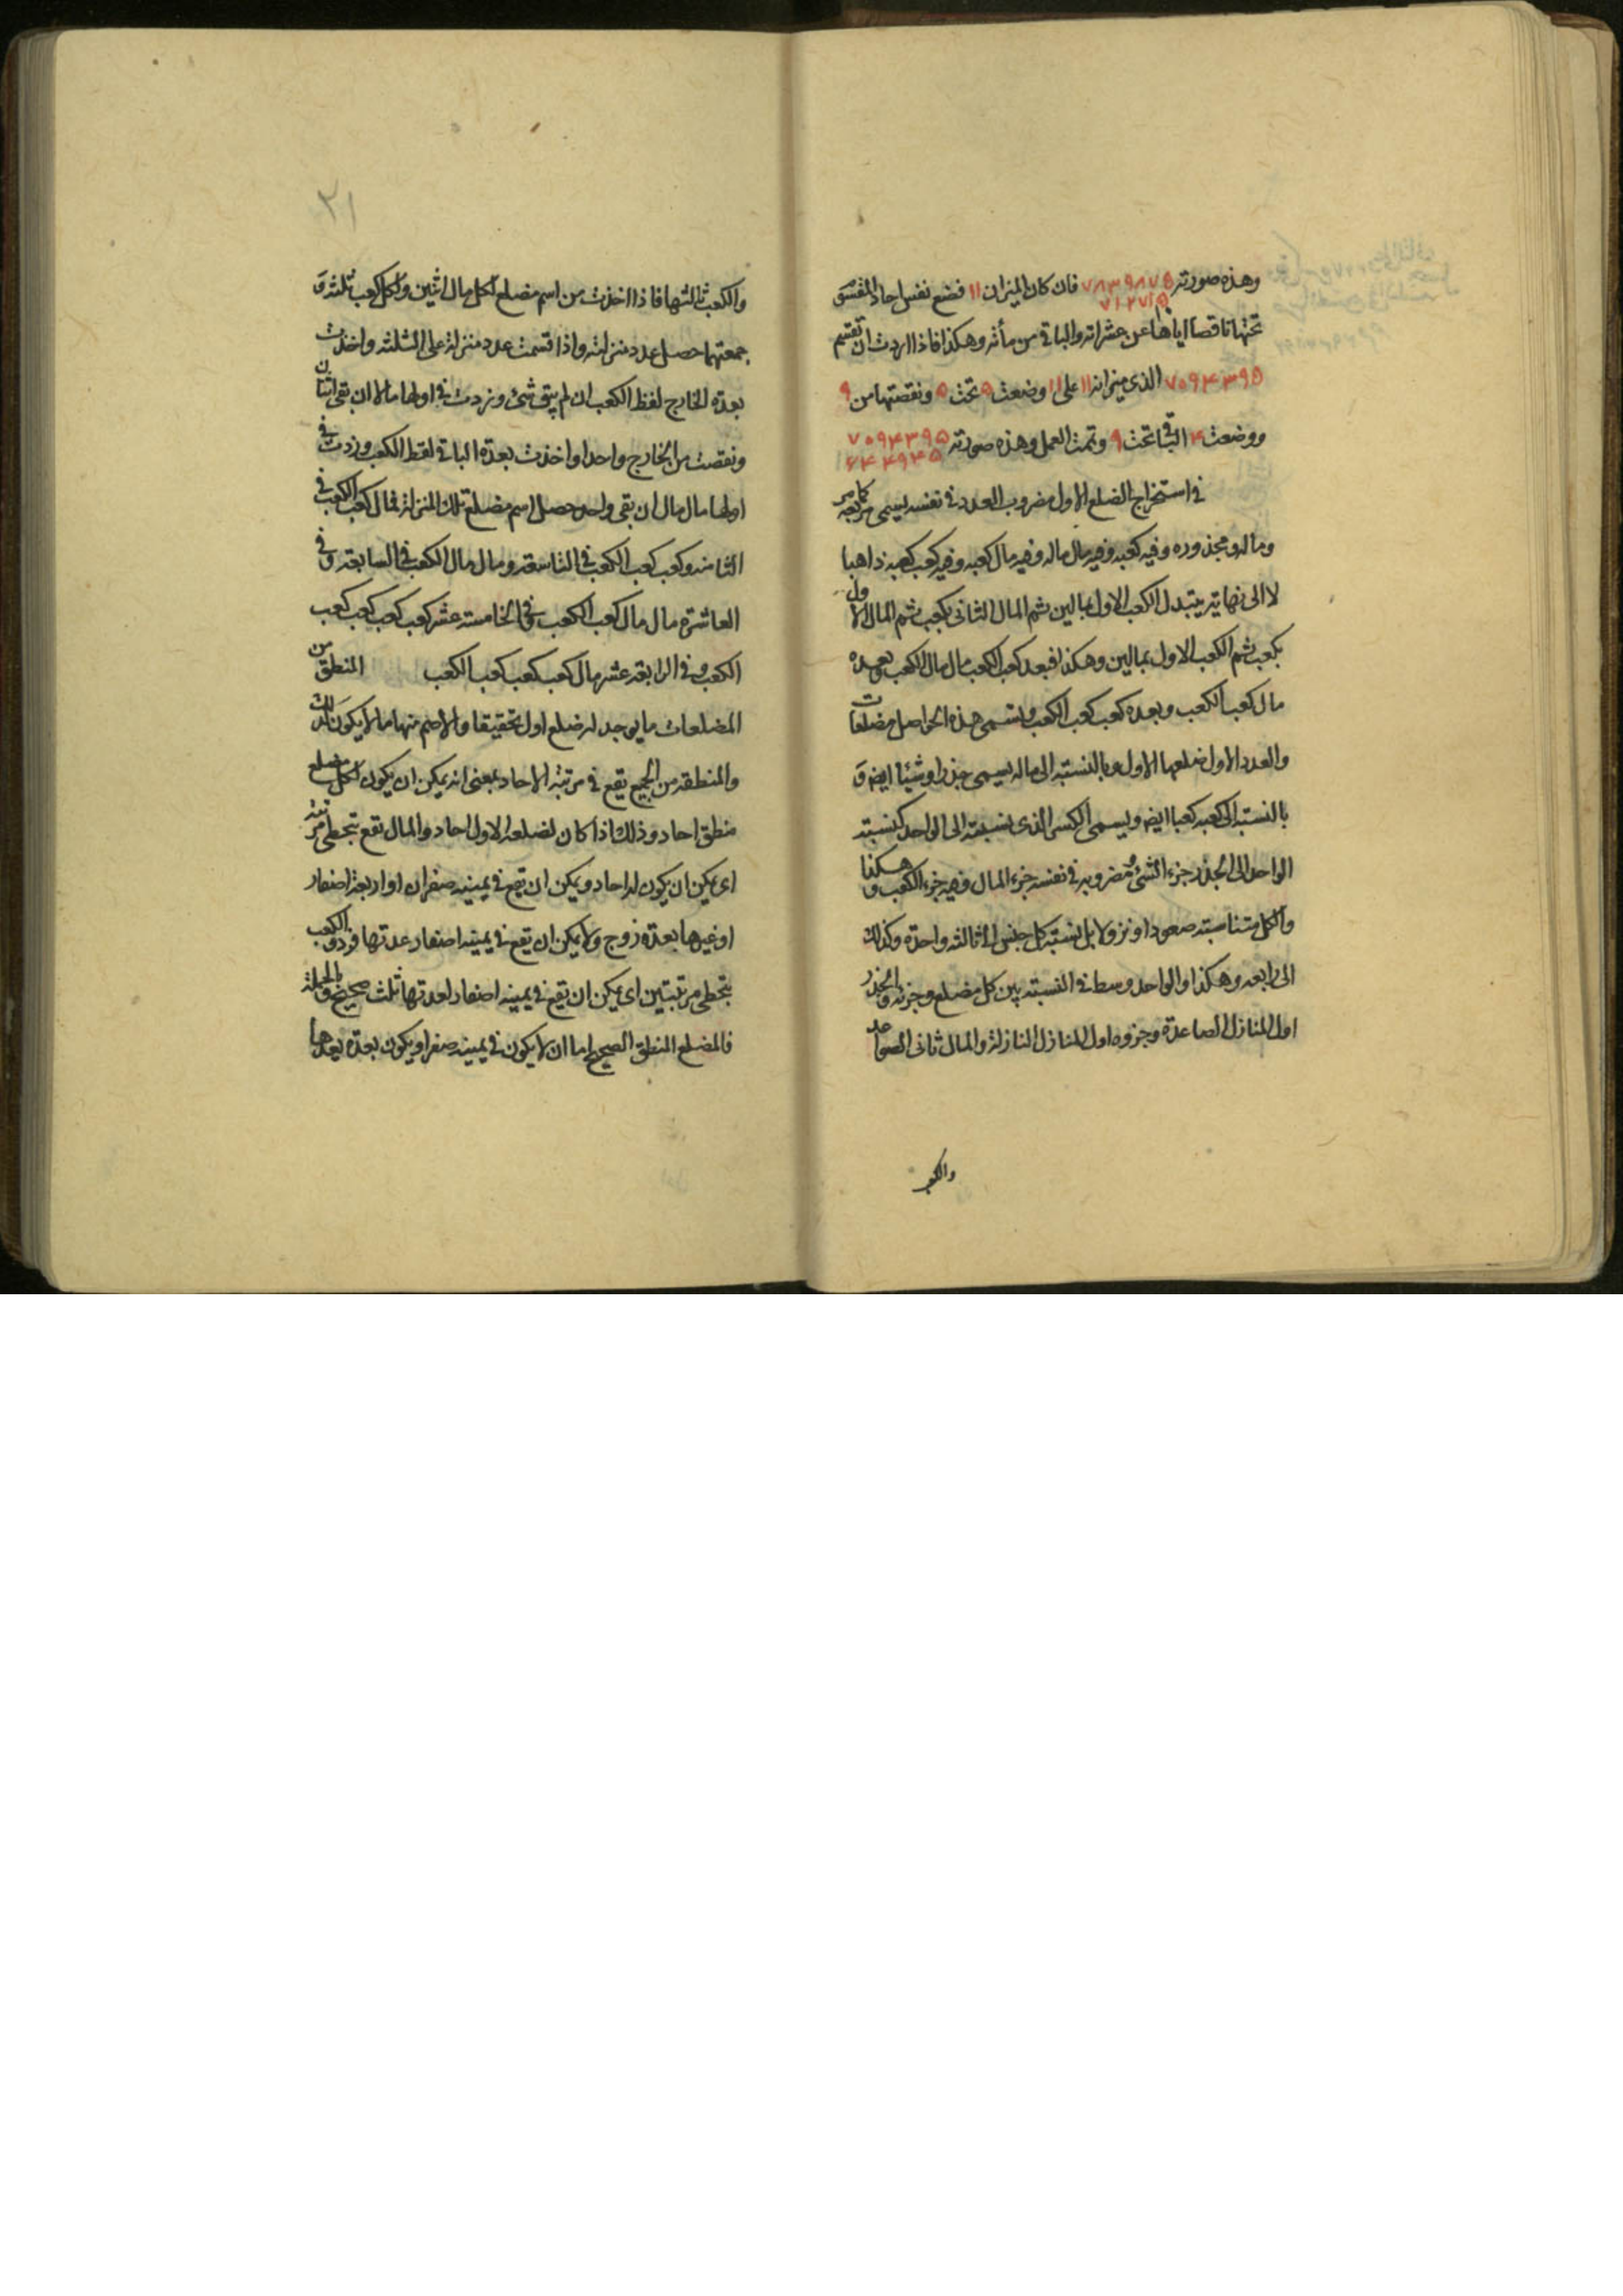 وهذه صورته ٧٨٣٩٨٧٥ فان كان الميزان ١١ فضع نفس احاد المقسوم
٧١٢٧١٥
تحتها ناقصا اياها عن عشراته والباقى من مأته وهكذا فاذا اردت ان تقسم
٧٠٩۴٣٩٥ الذى ميزانه ١١ على ١١ وضعت ٥ تحت ٥ ونقصتها من ٩
ووضعت ۴ الباقى تحت ٩ وتمت العمل وهذه صورته ٧٠٩۴٣٩٥
۶۴۴٩۴٥
فى استخراج الضلع الاول مضروب العدد فى نفسه يسمى مربعه كما مر
وماله ومجذوره وفيه كعبه وفيه مال ماله وفيه مال كعبه وفيه كعب كعبه ذاهبا
لا الى نهاية يتبدل الكعب الاول بمالين ثم المال الثانى بكعب ثم المال الاول
بكعب ثم الكعب الاول بمالين وهكذا فبعد كعب الكعب مال مال الكعب وبعده
مال كعب الكعب وبعده كعب كعب الكعب وتسمى هذه الحواصل مضلعات
والعدد الاول ضلعها الاول وبالنسبة الى ماله يسمى جذرا وشيئا ايضا و
بالنسبة الى كعبه كعبا ايضا ويسمى الكسر الذى نسبته الى الواحد كنسبة
الواحد الى الجذر جزء الشئ ومضروبه فى نفسه جزء المال وفيه جزء الكعب وهكذا
والكل متناسبة صعودا ونزولا بل نسبة كل جنس الى ثالثه واحدة وكذلك
الى رابعه وهكذا والواحد وسط فى النسبة بين كل مضلع وجزئه والجذر
اول المنازل الصاعدة وجزوه اول المنازل النازلة والمال ثانى الصواعد
والكعب
٢١
والكعب ثالثها فاذا اخذت من اسم مضلع لكل مال اثنين ولكل كعب ثلثة و
جمعتهما حصل عدد منزلته واذا قسمت عدد منزلة على الثلثة واخذت
بعدة الخارج لفظ الكعب ان لم يبق شئ وزدت فى اولها مالا ان بقى اثنان
ونقصت من الخارج واحدا واخذت بعدة الباقى لفظ الكعب وزدت فى
اولها مال مال ان بقى واحد حصل اسم مضلع تلك المنزلة فمال كعب الكعب فى
الثامنة وكعب كعب الكعب فى التاسعة ومال مال الكعب فى السابعة وفى
العاشرة مال مال كعب الكعب وفى الخامسة عشر كعب كعب كعب كعب
الكعب وفى الرابعة عشر مال كعب كعب كعب الكعب المنطق من
المضلعات ما يوجد له ضلع اول تحقيقا والاصم منها ما لا يكون كذلك
والمنطقة من الجميع يقع فى مرتبة الاحاد بمعنى انه يمكن ان يكون لكل مضلع
منطق احاد وذلك اذا كان لضلعه الاول احاد والمال تقع بتخطى مرتبة
اى يمكن ان يكون له احاد ويمكن ان تقع فى يمينه صفران او اربعة اصفار
او غيرها بعدة زوج ولا يمكن ان تقع فى يمينه اصفار عدتها فرد والكعب
بتخطى مرتبتين اى يمكن ان تقع فى يمينه اصفار لعدتها ثلث صحيح وبالجملة
فالمضلع المنطق الصحيح اما ان لا يكون فى يمينه صفر او يكون بعدة يعدها